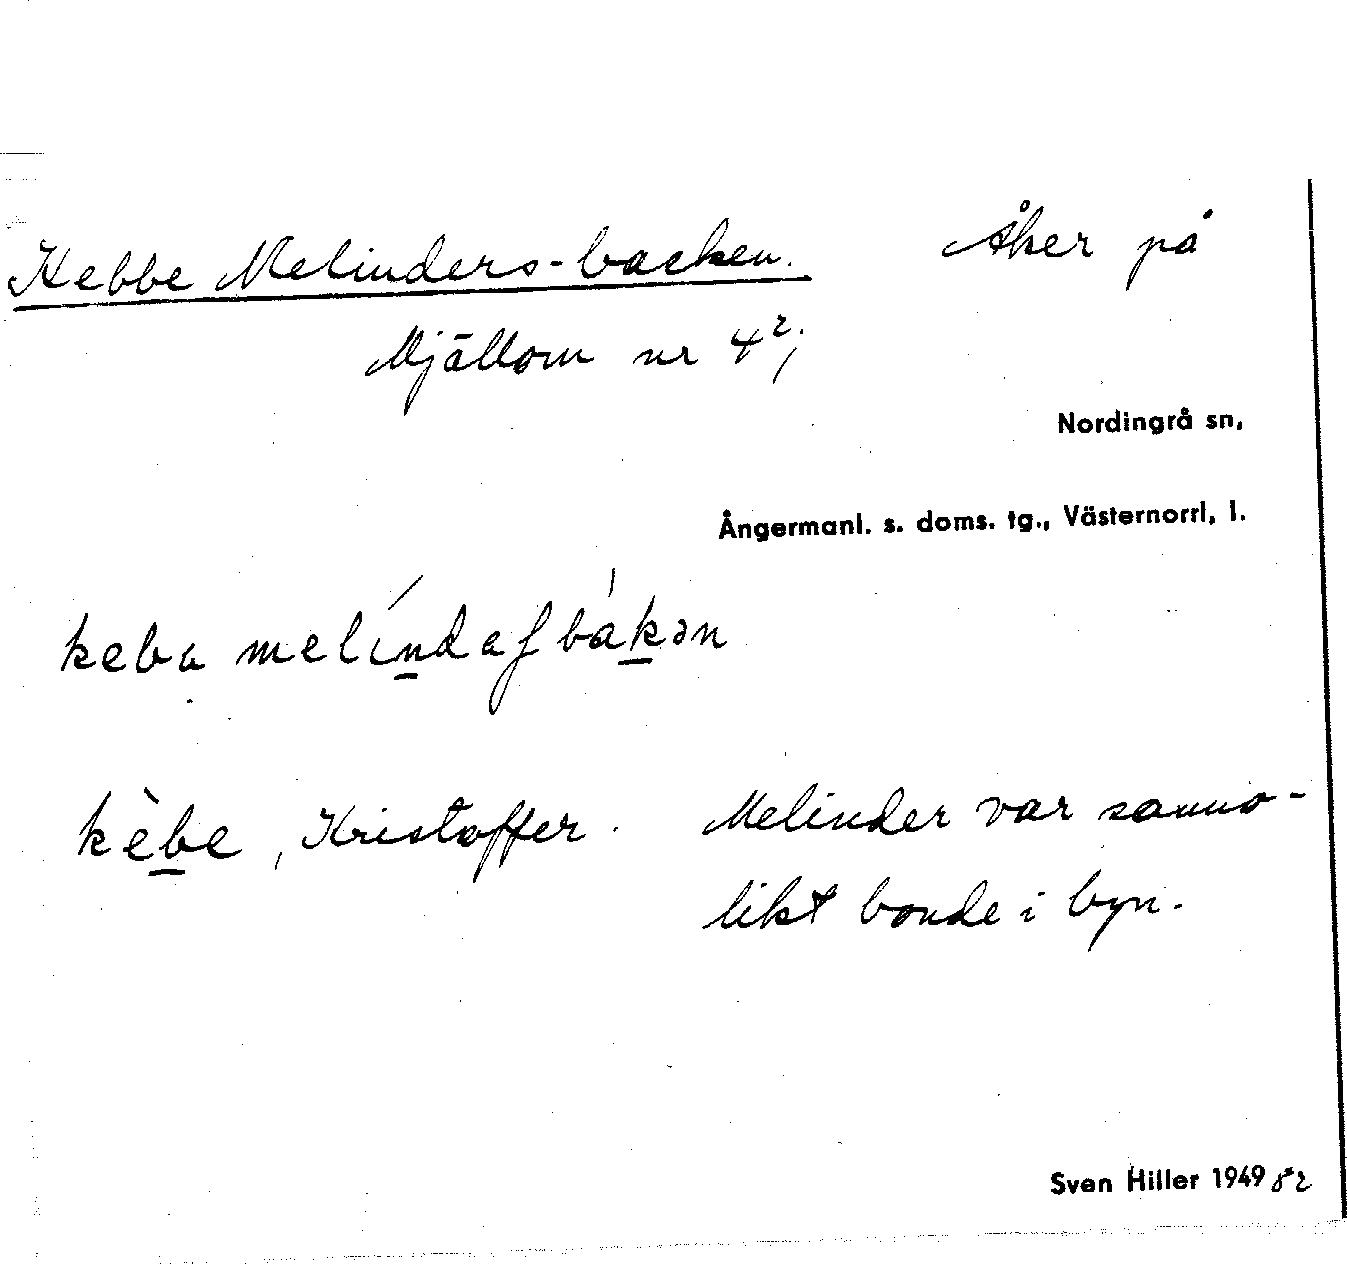 Kebbe Melinders-backen. Åker på
Mjällom nr 4²;
Nordingrå sn,
Ångermanl. s. doms. tg., Västernorrl, l.
keba melíndaʃbákən
kèbe, Kristoffer. Melinder var sanno-
likt bonde i byn.
Sven Hiller 1949 82